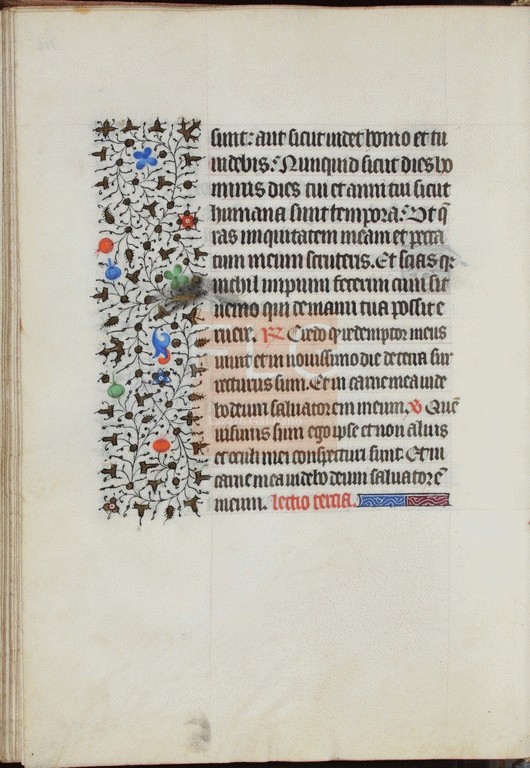 sunt: aut sicut videt homo et tu
videbis. Nunquid sicut dies ho
minis dies tui et anni tui sicut
humana sunt tempora. Ut q̄
ras iniquitatem meam et pecca
tum meum scruteris. Et scias qr
nichil impium fecerim cum sit
nemo qui de manu tua possit e
ruere. R̷ Credo q̄ redemptor meus
vivit et in novissimo die de terra sur
recturus sum. Et in carne mea vide
bo deum salvatorem meum. V̷ Quē
visurus sum ego ipse et non alius
et oculi mei conspecturi sunt. Et in
carne mea videbo deum salvatorē
meum. Lectio tercia.